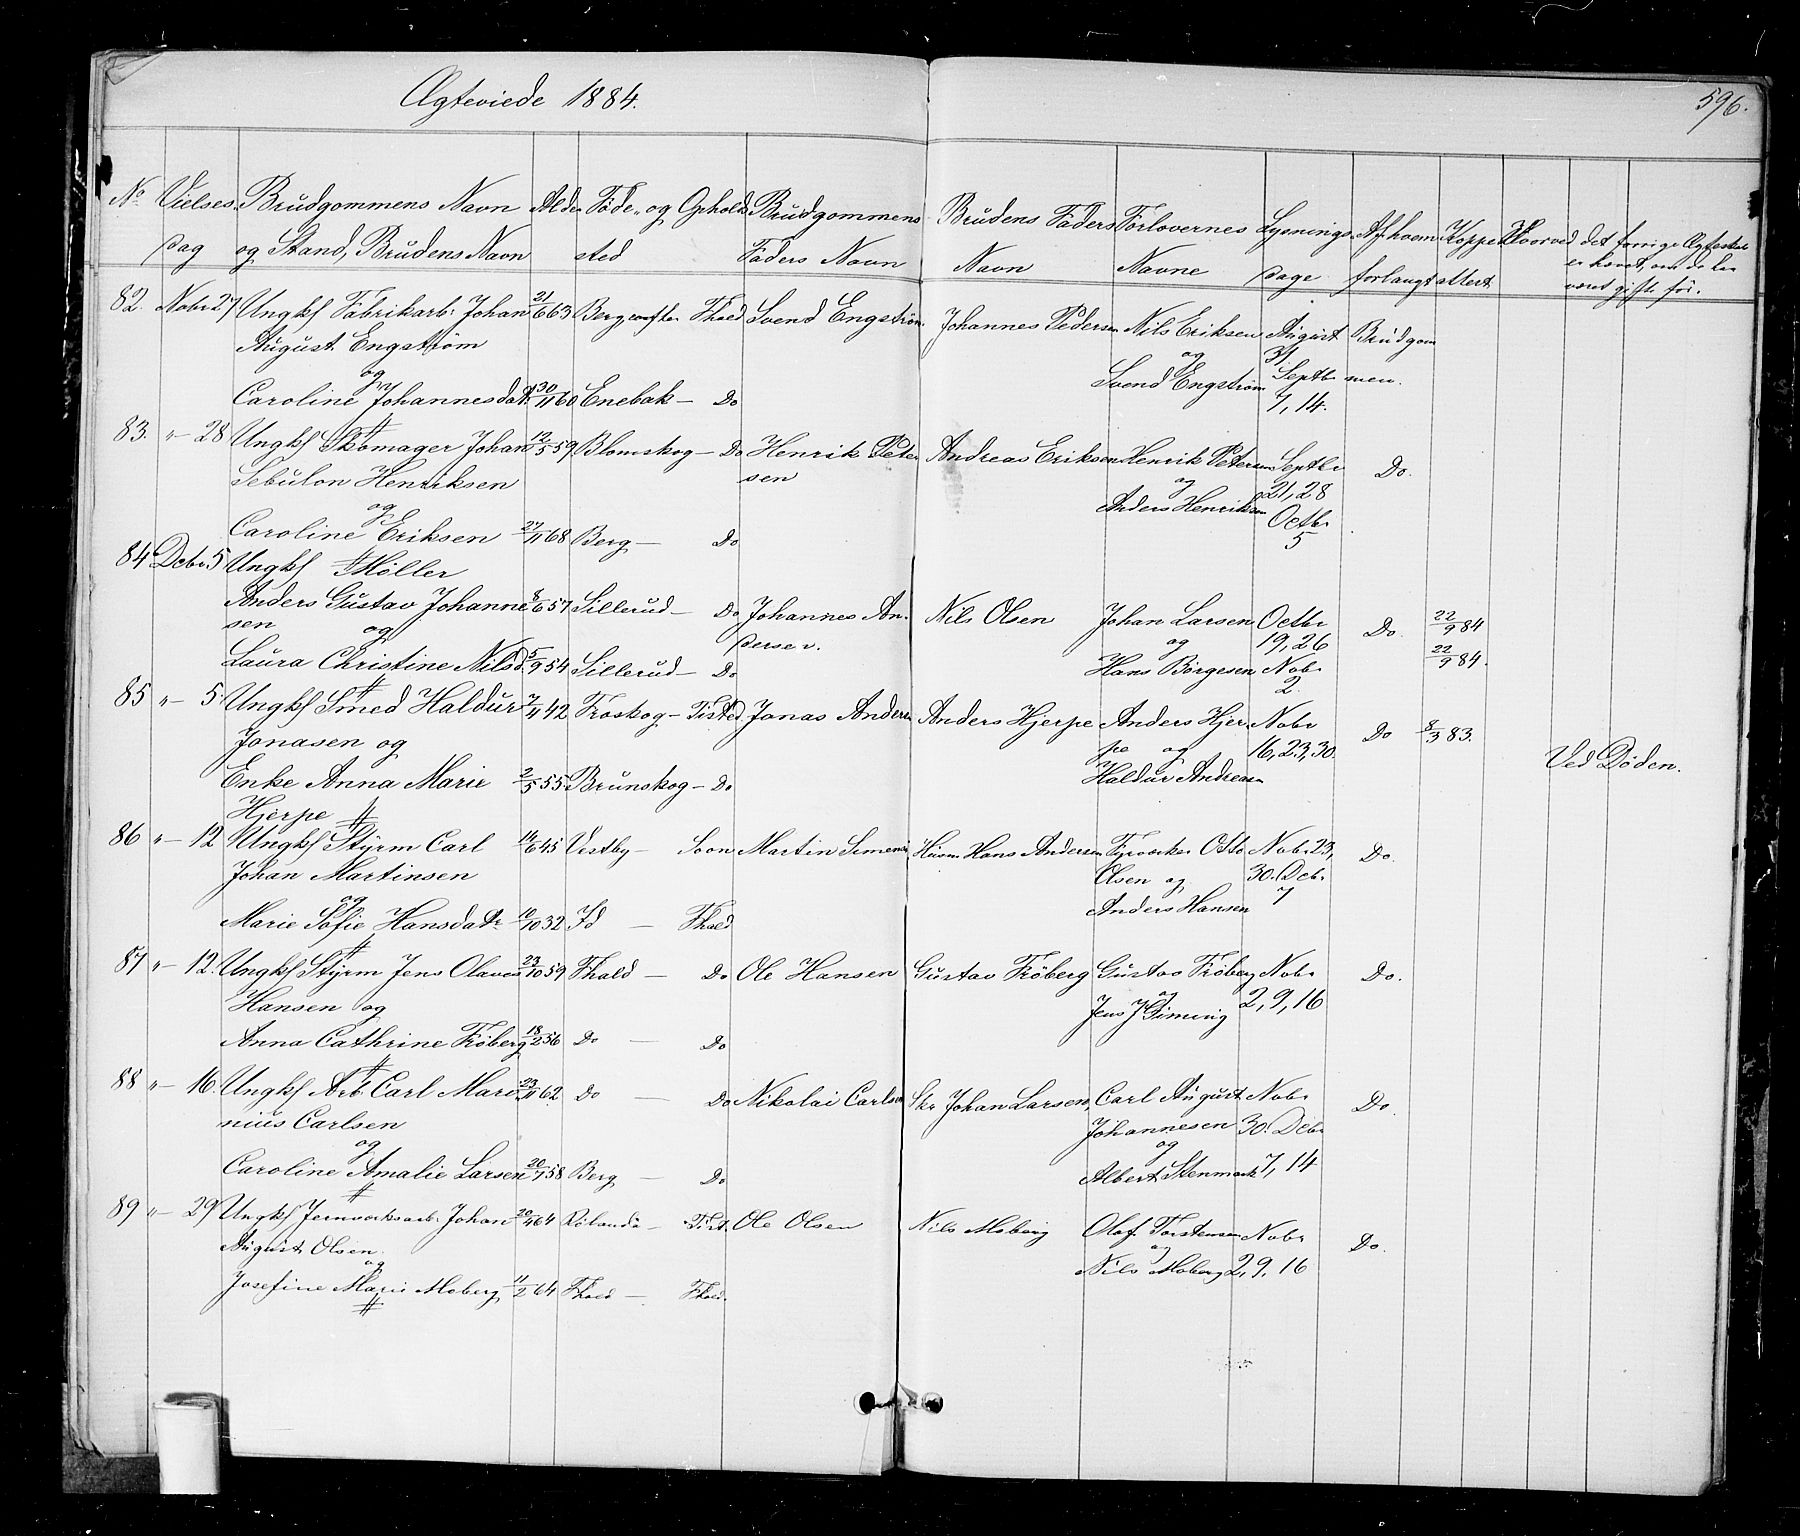 Ægteviede 1884.
596.
No Vielses Brudgommens Navn Alder Føde- og Opholds Brudgommens Brudens Faders Forlovernes Lysnings Af hvem Koppe Hvorved det forrige Ægteskab
dag og Stand, Brudens Navn sted Faders Navn Navn Navne dage forlangt attest er hævet, om de har
været gifte før.
82. Nobr 27 Ungkl Fabrikarb: Johan 21/6 63 Fhald Svend Engstrøm Johannes Pedersen Nils Eriksen August Brudgom
August Engstrøm og 31
og Svend Engstrøm Septbr men.
Caroline Johannesdatr 30/11 60 Enebak - Do 7, 14.
83. " - 28 Ungkl Skomager Johan 12/5 59 Blomskog - Do Henrik Peter Andreas Eriksen Henrik Petersen Septbr Do.
Sebulon Henriksen sen og 21, 28
og Anders Henriksen Octbr
Caroline Eriksen 27/11 68 Berg - Do 5
84 Dcbr 5 Ungkl Møller
Anders Gustav Johanne 8/6 57 Sillerud - Do Johannes An- Nils Olsen Johan Larsen Octbr Do. 22/9 84
sen og dersen. og 19, 26 22/9 84.
Laura Christine Nilsd. 5/9 54 Sillerud - Do Hans Børgesen Nobr
2.
85 " - 5 Ungkl Smed Haldur 7/11 42 Froskog - Tisted Jonas Andersen Anders Hjerpe Anders Hjer Nobr Do 8/3 83.
Jonasen og pe og 16, 23, 30.
Enke Anna Marie 2/5 55 Brunskog - Do Haldur Andreasen Ved Døden.
Hjerpe
86 " - 12 Ungkl Styrm Carl 14/6 45 Vestby - Soon Martin Simensen Husm Hans Andersen Fyrvocker Otto Nobr 23, Do.
Johan Martinsen Olsen og 30. Dcbr
og Anders Hansen 7
Marie Sofie Hansdatr 10/10 32 Id - Fhald
87 " - 12. Ungkl Styrm Jens Olaves 23/10 59 Fhald - Do Ole Hansen Gustav Frøberg Gustav Frøberg Nobr Do.
Hansen og og 2, 9, 16
Jens J
Anna Cathrine Frøberg 18/2 56 Do - Do
88 " - 16. Ungkl Arb. Carl Mari 23/11 62. Do - Do Nikolai Carlsen Skr Johan Larsen, Carl August Nobr Do.
nius Carlsen Johannesen 30. Dcbr
og og
Caroline Amalie Larsen 20/7 58 Berg - Do Albert Stenmark 7, 14
89 " - 29 Ungkl Jernværksarb: Johan 20/4 64 - Tist. Ole Olsen Nils Moberg Olaf Torstensen Nobr Do.
August Olsen. og
og Nils Moberg 2, 9, 16
Josefine Marie Moberg 11/2 64 Fhald - Fhald.